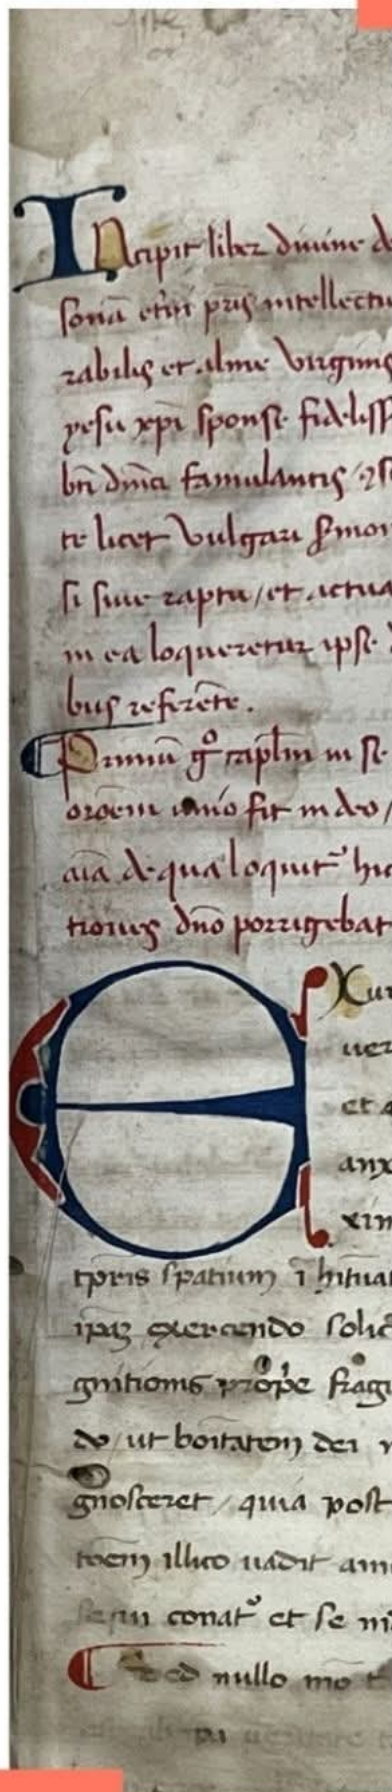 INcipit liber divine d
sona et̄ni pr̄is intellectu
rabilis et alme Virginis
yesu xp̄i sponse fideliss
bt̄i dn̄ici famulantis /
te licet Vulgari s̄mon
si sive raptu / et actua
in ea loqueretur ipse
bus referēte .
Primū gͦ capl̄m in se
or̄oem unio fit in deo /
aīa de qua loquit᷑ hic
tionis dn̄o porrigebat
EXur
ver
et
anx
xim
tp̄ris spatium ī h̄ituat
ipaꝝ exercendo solic
gnitionis prop̄e fragi
do / ut bo̅itatem dei
gnosceret / quia post
illico vadit am
conat᷑ et se
Sed nullo mo̅